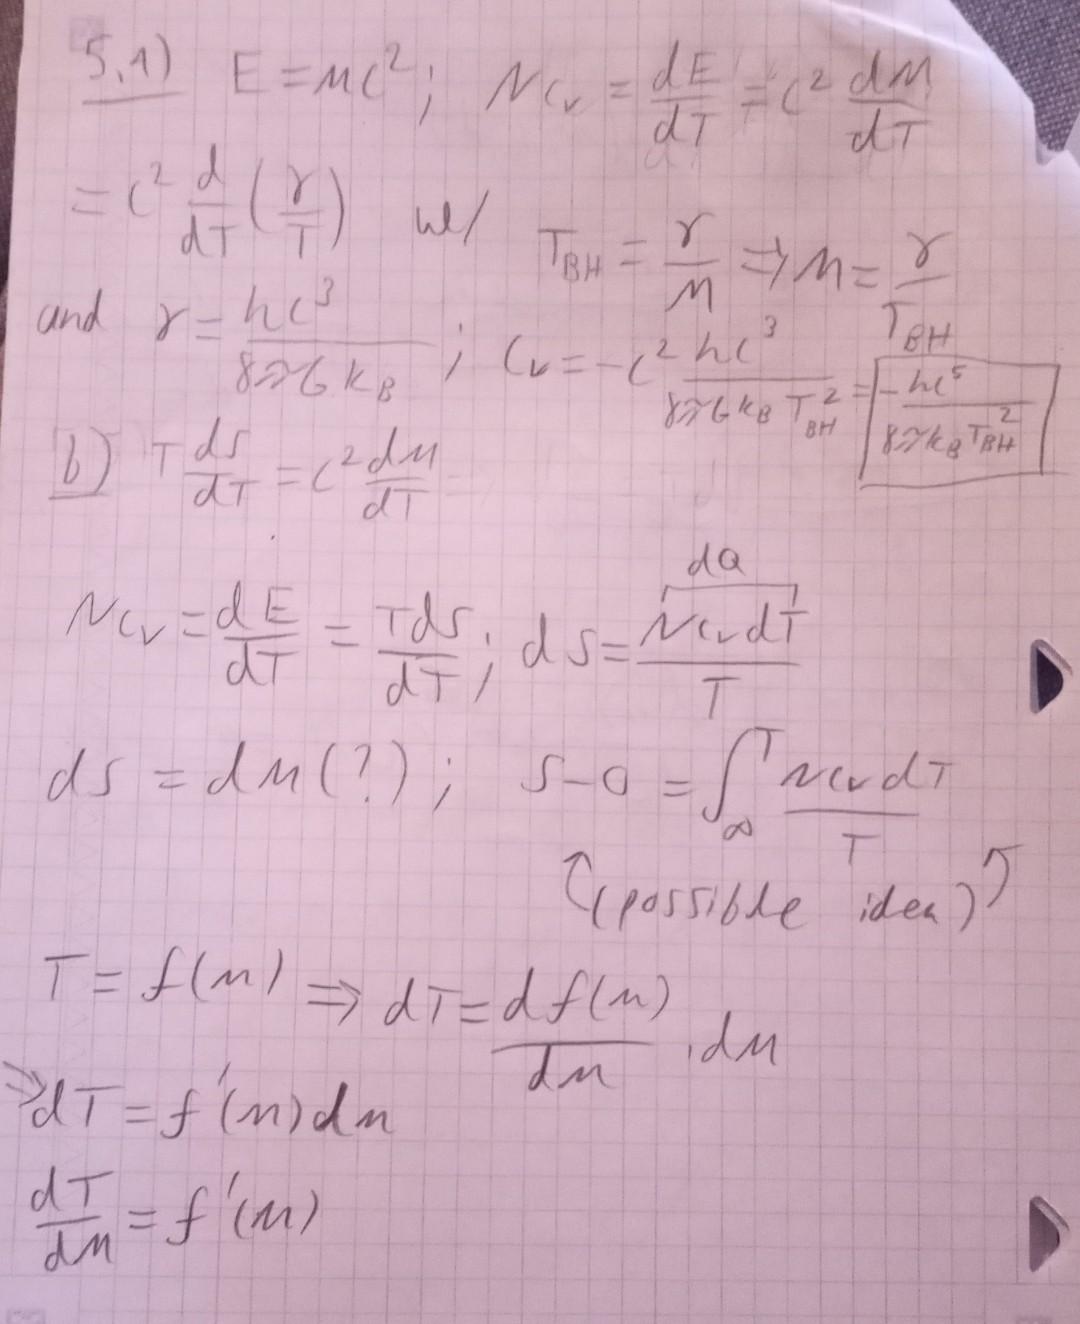 5.1) E = Mc²; NCᵥ = dE/dT = c² dM/dT
= c² d/dT (γ/T) w/ T_BH = γ/M ⇒ M = γ/T_BH
and γ = hc³/8πGk_B ; Cᵥ = -c² hc³/8πGk_B T_BH² = -hc⁵/8πk_B T_BH²
b) T dS/dT = c² dM/dT
NCᵥ = dE/dT = TdS/dT; dS = NCᵥdT/T
dQ
dS = dM(?); S-0 = ∫_∞^T NCᵥdT/T
(possible idea)
T = f(M) ⇒ dT = df(M)/dM . dM
⇒ dT = f'(M)dM
dT/dM = f'(M)